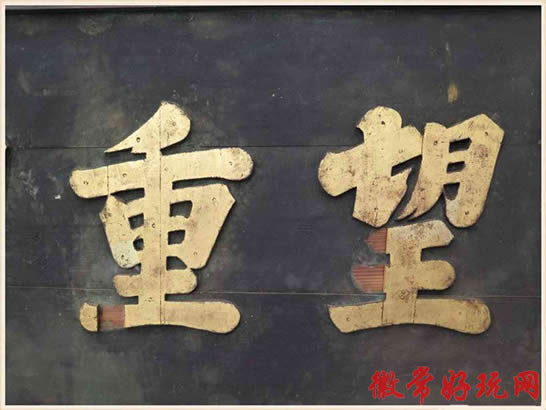 望重
徽常好玩网